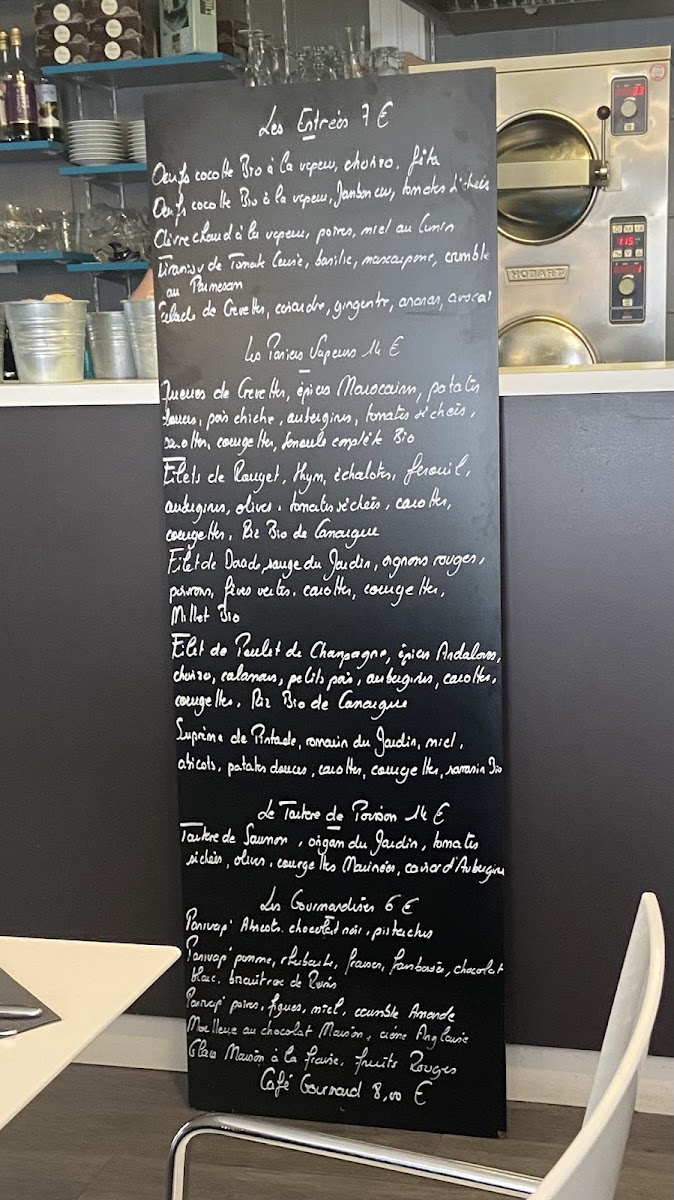 Les Entrées 7 €
Oeufs cocotte Bio à la vapeur, chorizo, féta
Oeufs cocotte Bio à la vapeur, Jambon cru, tomates séchées
Chèvre chaud à la vapeur, poires, miel au Cumin
Tiramisu de Tomate Cerise, basilic, mascarpone, crumble
au Parmesan
de Crevettes, coriandre, gingembre, ananas, avocat
Les Paniers Vapeurs 14 €
Queues de Crevettes, épices Marocaines, patates
douces, pois chiche, aubergines, tomates séchées,
carottes, courgettes, semoule complète Bio
Filets de Rouget, thym, échalotes, fenouil,
aubergines, olives, tomates séchées, carottes,
courgettes, Riz Bio de Camargue
Filet de Daurade, sauge du Jardin, oignons rouges,
poivrons, fèves vertes, carottes, courgettes,
Millet Bio
Filet de Poulet de Champagne, épices Andalouses,
chorizo, calamars, petits pois, aubergines, carottes,
courgettes, Riz Bio de Camargue
Suprême de Pintade, romarin du Jardin, miel,
abricots, patates douces, carottes, courgettes, sarrasin Bio
Le Tartare de Poisson 14 €
Tartare de Saumon, origan du Jardin, tomates
séchées, olives, courgettes Marinées, caviar d'Aubergine
Les Gourmandises 6 €
Panivap' Abricots, chocolat noir, pistaches
Panivap' pomme, rhubarbe, fraises, framboises, chocolat
blanc, biscuit rose de Reims
Panivap' poires, figues, miel, crumble Amande
Moelleux au chocolat Maison, crème Anglaise
Glace Maison à la fraise, fruits Rouges
Café Gourmand 8,00 €
HOBART
33
115
1